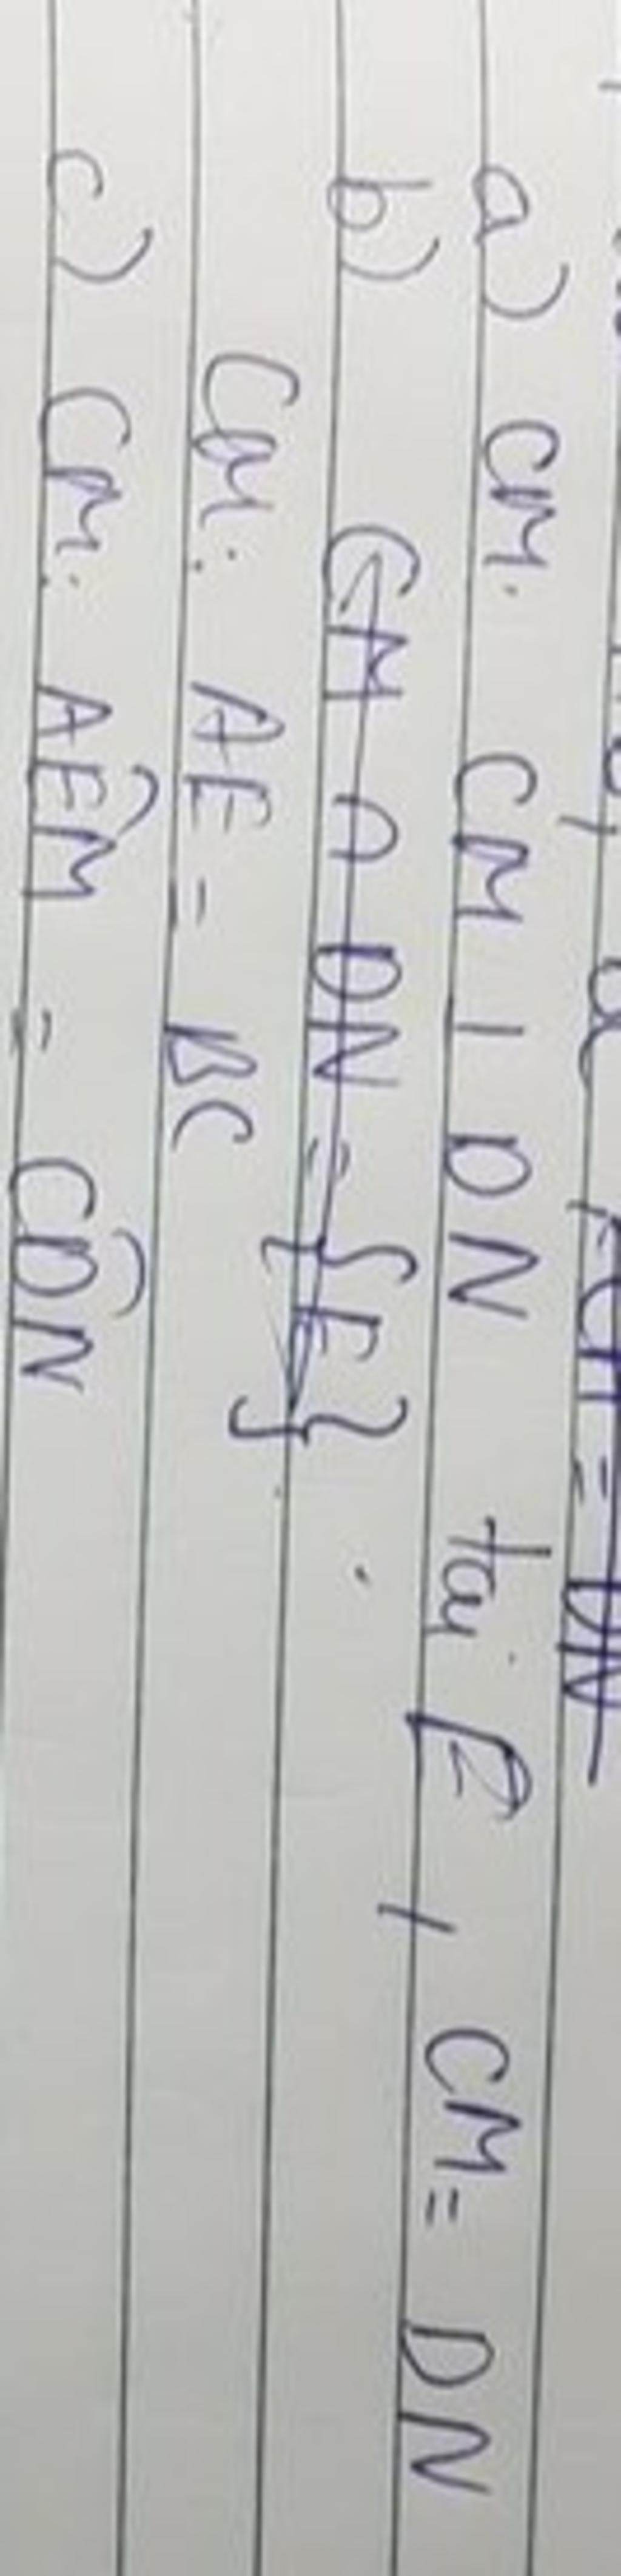 a) CM. CM ⊥ DN tại E, CM = DN
b) CM ∩ DN = {E}.
CM: AE = BC
c) CM: AÊM = CD̂N